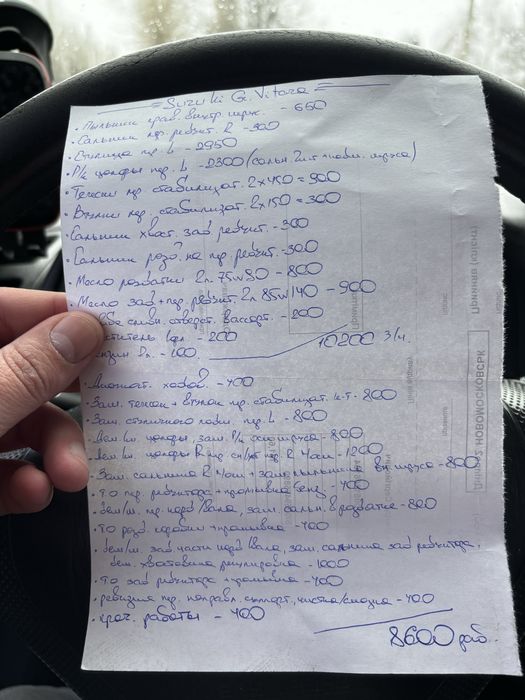 Suzuki G. Vitara
• Пыльник прав. внутр шрус. - 650
• Сальник пер. редукт. R - 300
• Ступица пер. L - 2950
• Р/к цапфы пер. L - 2300 (сальн 2шт + подш. шруса)
• Тяги пер. стабилизат. 2x450=900
• Втулки пер. стабилизат. 2x150=300
• Сальник хвост. зад редукт. - 300
• Сальник разд. на пер. редукт. - 300
• Масло раздатки 2л 75w90 - 800
• Масло зад + пер. редукт. 2л 85w140 - 900
сливн. отверст. - 200
1фл - 200
2л. - 100.
10200 З/ч.
• Диагност. ходов. - 400
• Зам. тяг + втулок пер. стабилизат. к-т - 800
• Зам. ступичного подш. пер. L - 800
• Дем/м. цапфы, зам. Р/к - 800
• Дем/м. цапфы R пер. R - 1200
• Зам. сальника R + зам. пыльника вн. шруса - 800
• ТО пер. редуктора + промывка - 400
• Дем/м. пер. кард/вала, зам. сальн. в раздатке - 800
• ТО разд. коробки + промывка - 400
• Дем/м. зад части кард/вала, зам. сальника зад редуктора,
дем. хвостовика регулировка - 1000
• ТО зад редуктора + промывка - 400
• ревизия пер. направл. суппорт., чистка/смазка - 400
работы - 400
8600 раб.
НОВОМОСКОВСРК